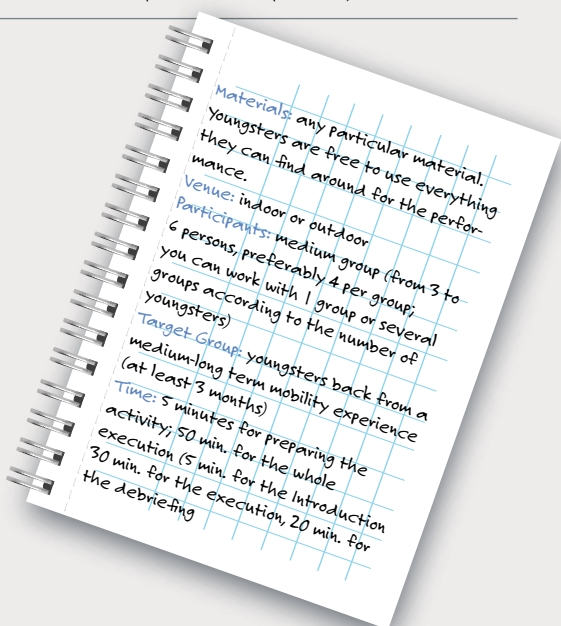 Materials: any particular material.
Youngsters are free to use everything
they can find around for the perfor-
mance.
Venue: indoor or outdoor
Participants: medium group (from 3 to
6 persons, preferably 4 per group;
you can work with 1 group or several
groups according to the number of
youngsters)
Target Group: youngsters back from a
medium-long term mobility experience
(at least 3 months)
Time: 5 minutes for preparing the
activity; 50 min. for the whole
execution (5 min. for the Introduction
30 min. for the execution, 20 min. for
the debriefing